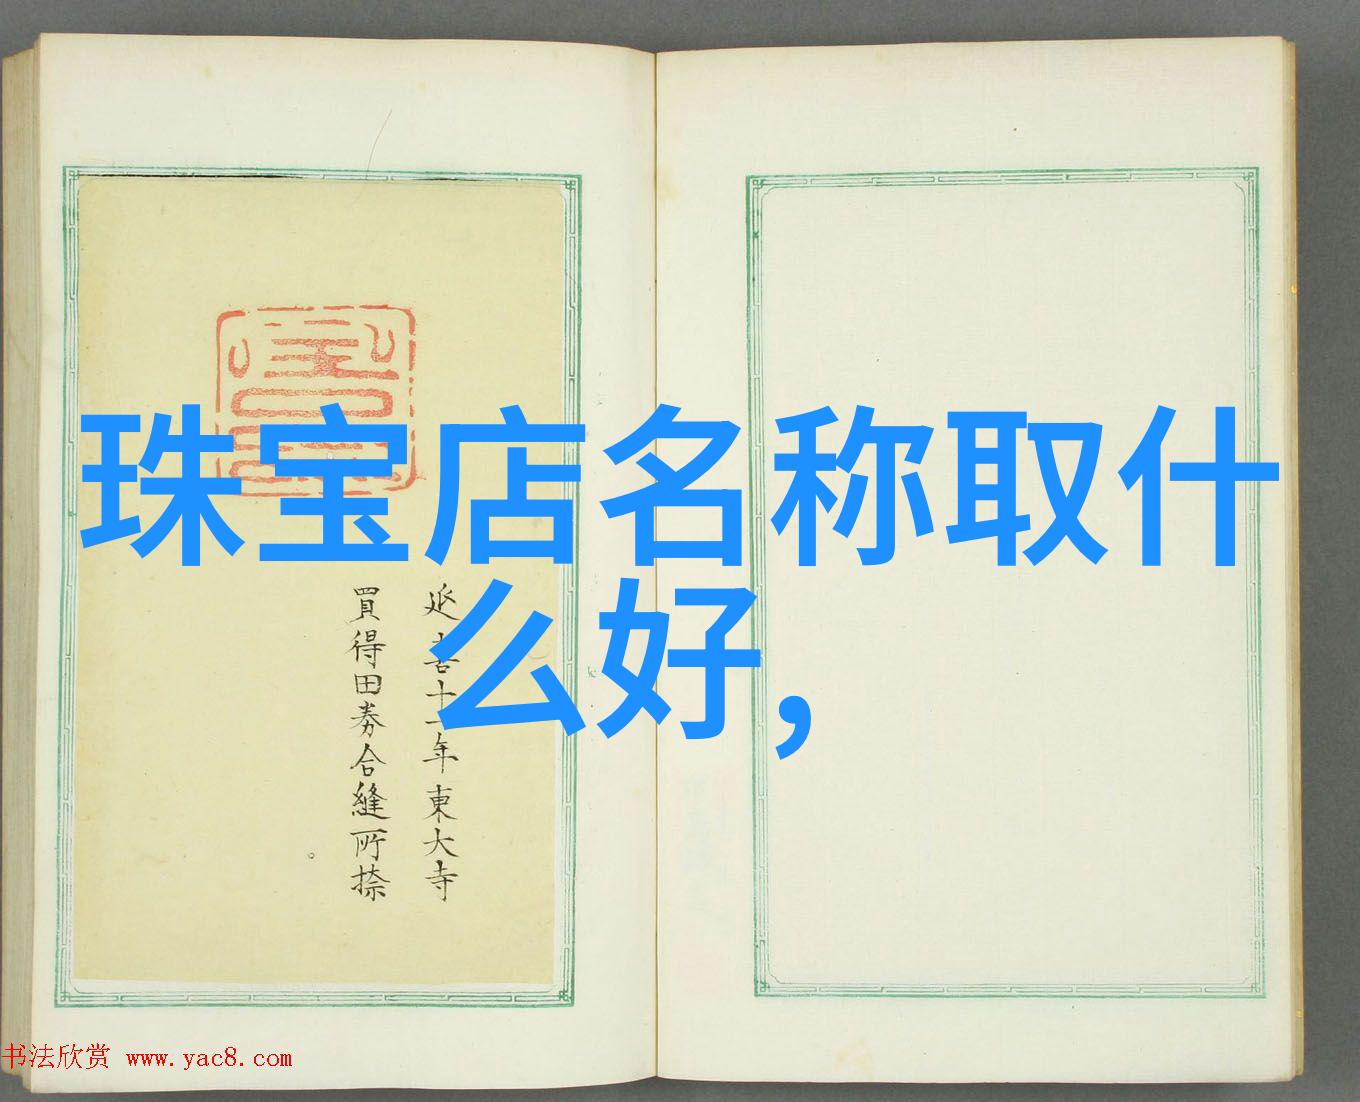 珠宝店名称取什
么好，
延喜十一年東大寺
買得田券合縫所捺
书法欣赏 www.yac8.com